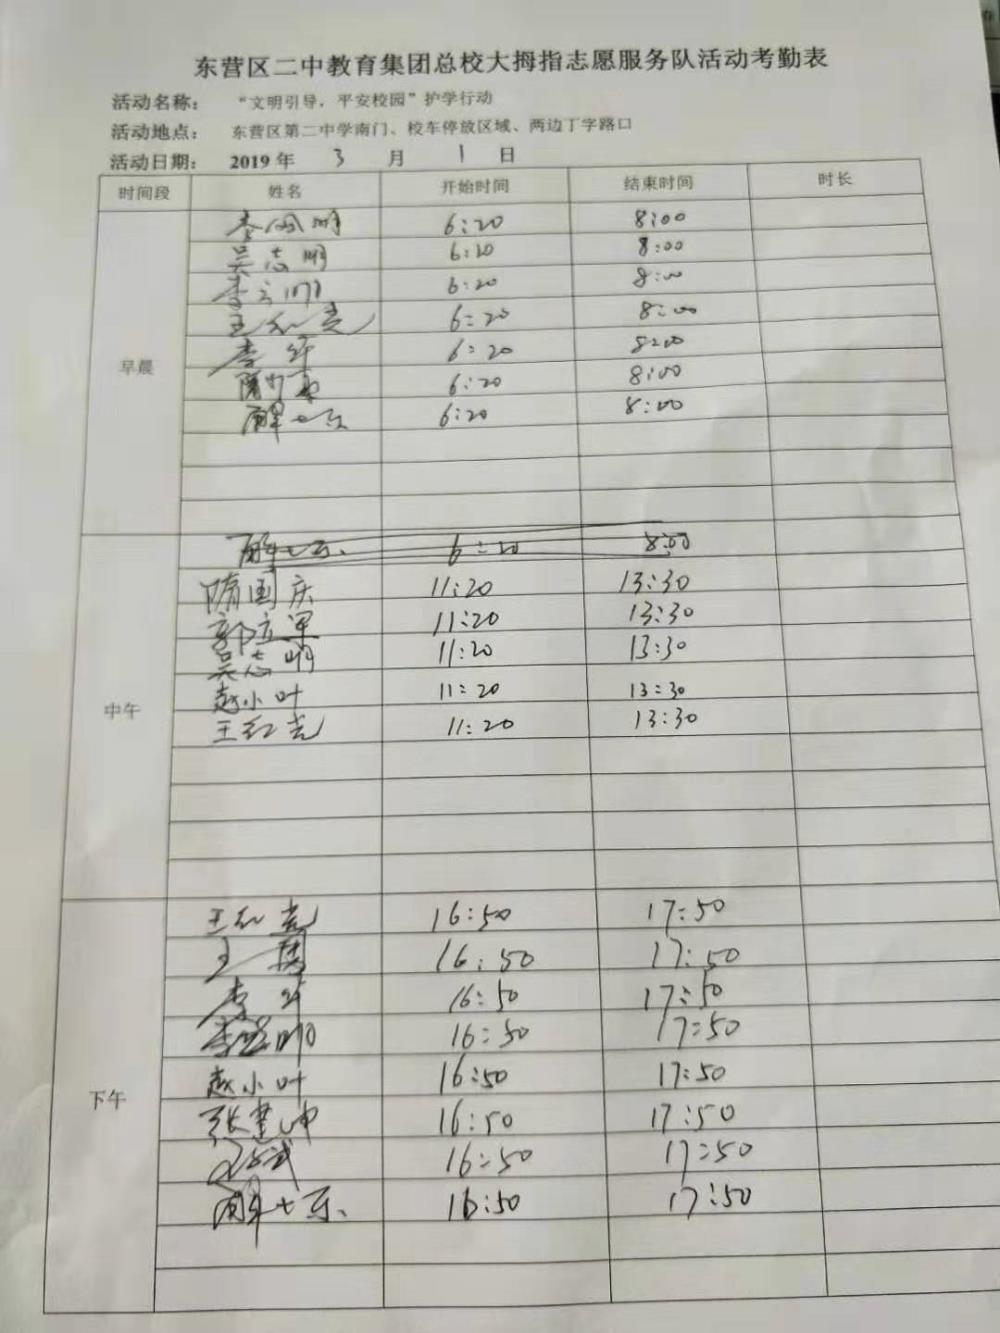 东营区二中教育集团总校大拇指志愿服务队活动考勤表
活动名称： “文明引导，平安校园”护学行动
活动地点： 东营区第二中学南门、校车停放区域、两边丁字路口
活动日期： 2019 年 3 月 1 日
时间段 姓名 开始时间 结束时间 时长
早晨
6:20 8:00
吴志明 6:20 8:00
6:20 8:00
6:20 8:00
李华 6:20 8:00
6:20 8:00
6:20 8:00
中午
6:20 8:00
隋国庆 11:20 13:30
郭立军 11:20 13:30
吴志明 11:20 13:30
赵小叶 11:20 13:30
王红亮 11:20 13:30
下午
王红亮 16:50 17:50
16:50 17:50
李华 16:50 17:50
16:50 17:50
赵小叶 16:50 17:50
16:50 17:50
16:50 17:50
16:50 17:50